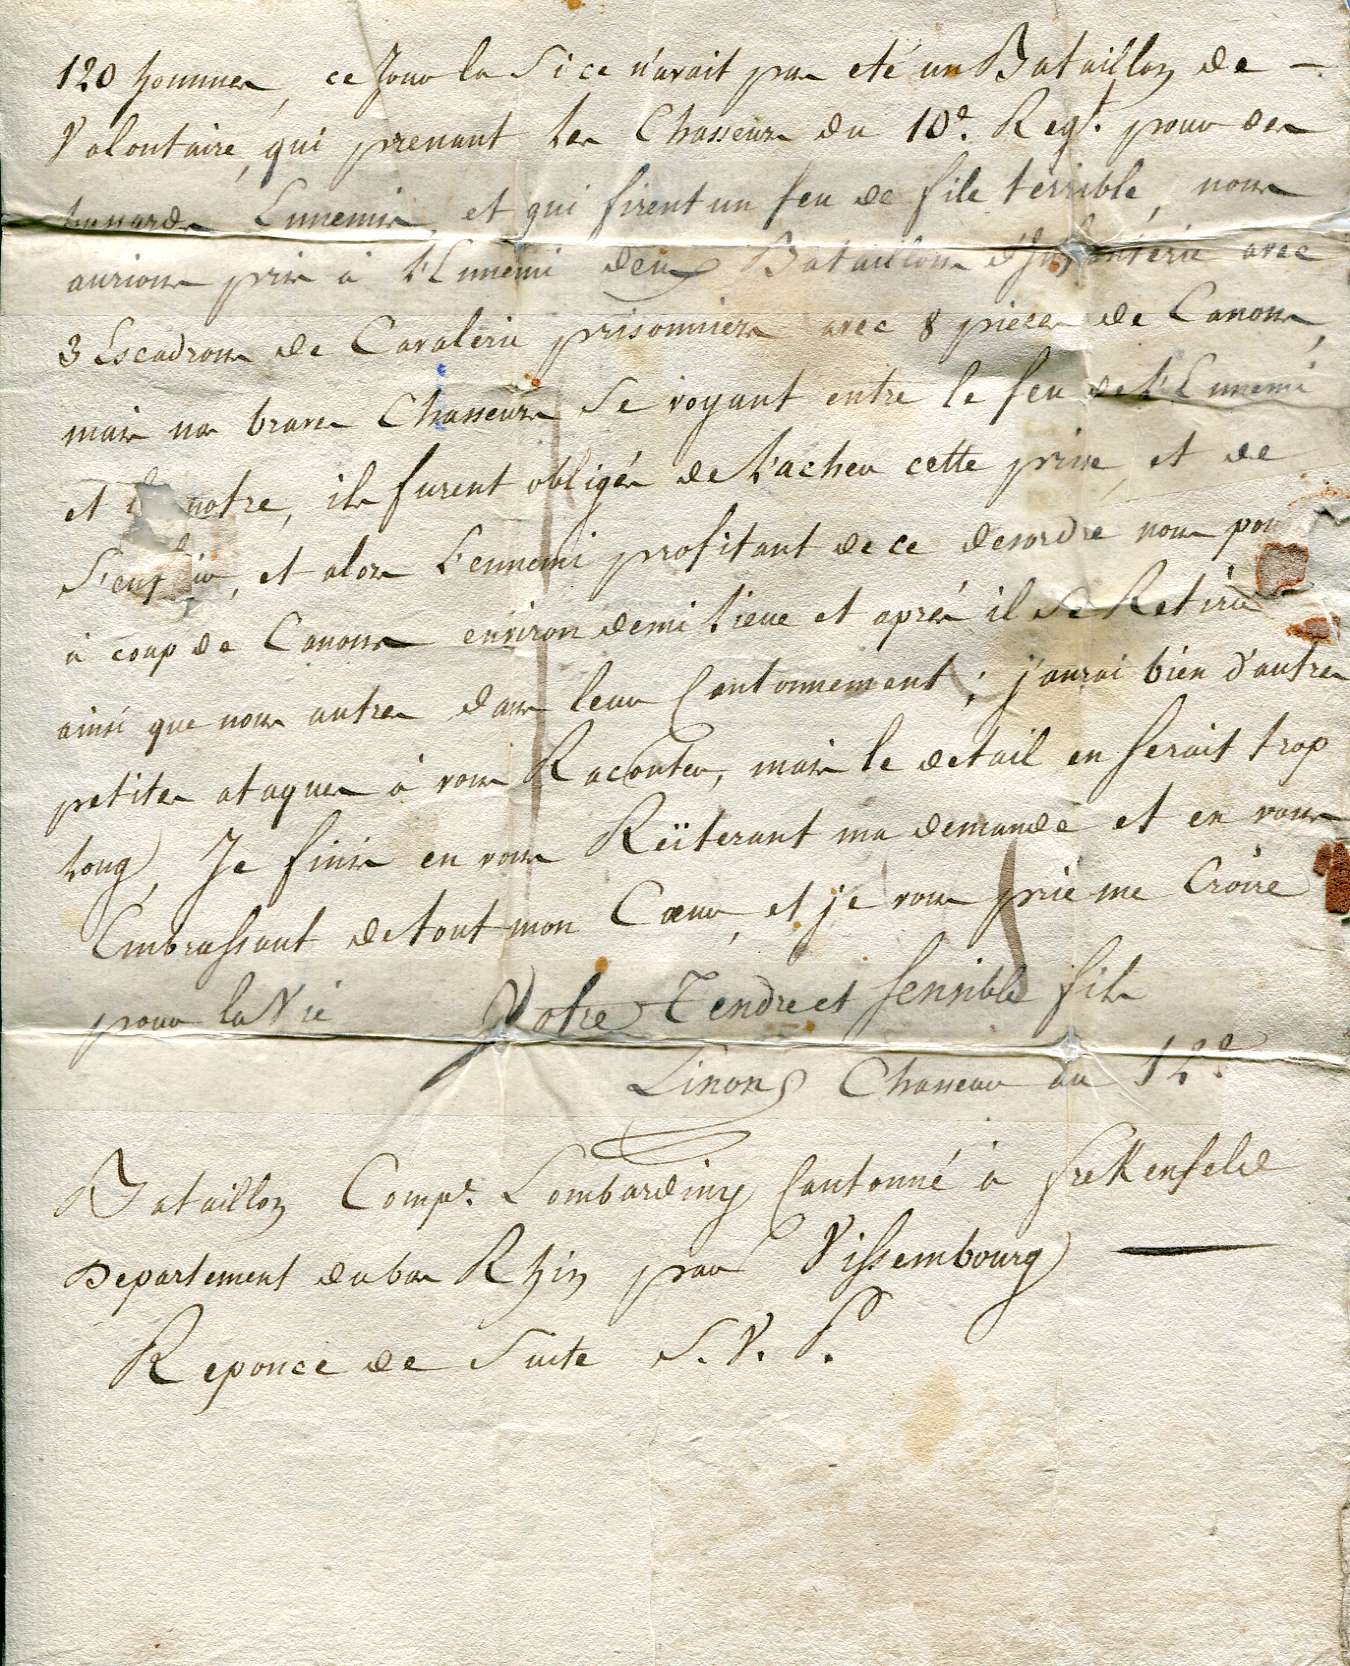 120 hommes, ce Jour la Si ce n'avait pas eté un Bataillon de –
Volontaire, qui prenant les Chasseurs du 10e. Regt. pour des
husards Ennemis, et qui firent un feu de file terrible, nous
aurions pris à L'Ennemi deux Bataillons d'Infanterie avec
3 Escadrons de Cavalerie prisonniers avec 8 pieces de Canons,
mais nos braves Chasseurs Se voyant entre le feu de L'Ennemi
et notre, ils furent obligés de Lacher cette prise, et de
et alors L'ennemi profitant de ce desordre nous
à coup de Canons environ demi Lieue et après il Se Retira
ainsi que nous autres dans leur Cantonnement; j'aurai bien d'autres
petites ataques à vous Raconter, mais le detail en Serait trop
Long, Je finis en vous Reïterant ma demande et en vous
Embrassant de tout mon Cœur, et je vous prie me Croire
pour la Vie Votre Tendre et Sensible fils
Linon Chasseur au 12e.
Bataillon Compe. Lombardiny Cantonné à frekenfeld
Departement du bas Rhin par Vissembourg
Reponce de Suite S. V. P.